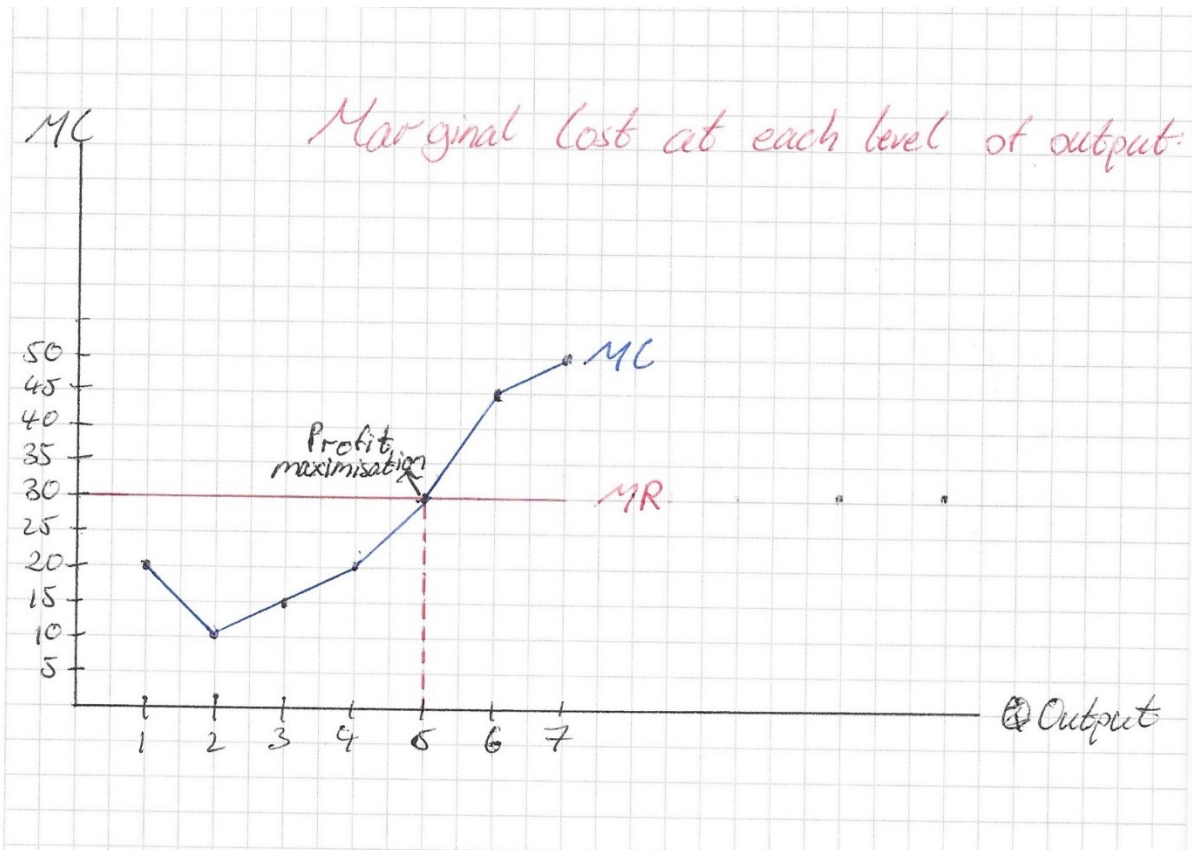 MC
Marginal Cost at each level of output:
50
45
40
35
30
25
20
15
10
5
MC
Profit
maximisation
MR
1 2 3 4 5 6 7
Q Output